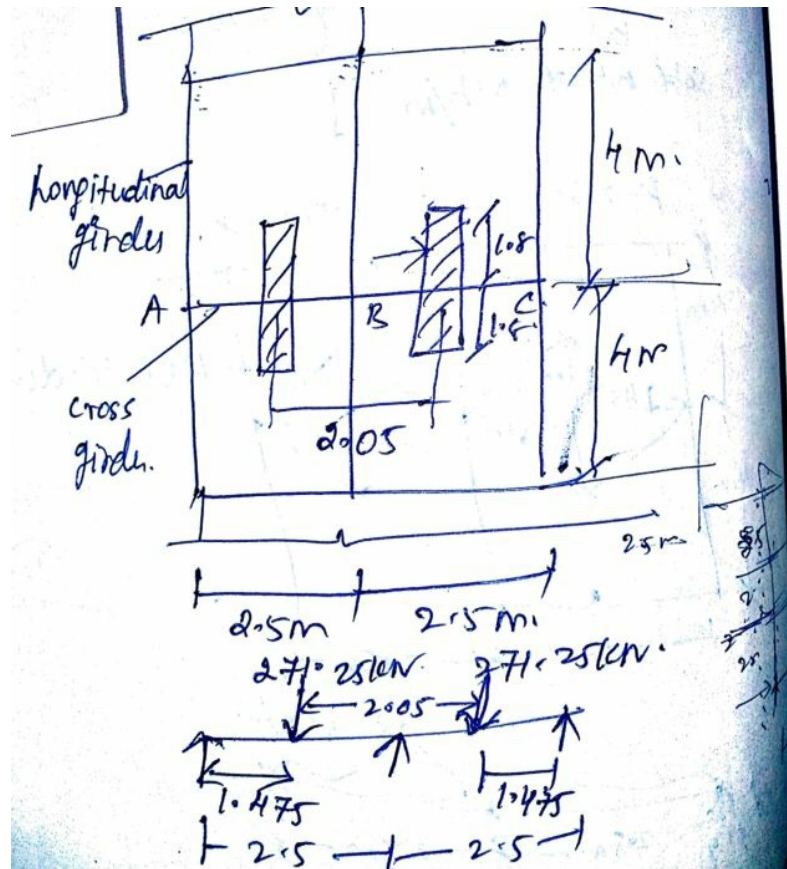 4 m.
Longitudinal
girder
1.8
A
B
C
1.8
4 m
cross
girder.
2.05
2.5m
2.5 m.
271.25kN.
271.25kN.
2.05
1.475
1.475
2.5
2.5